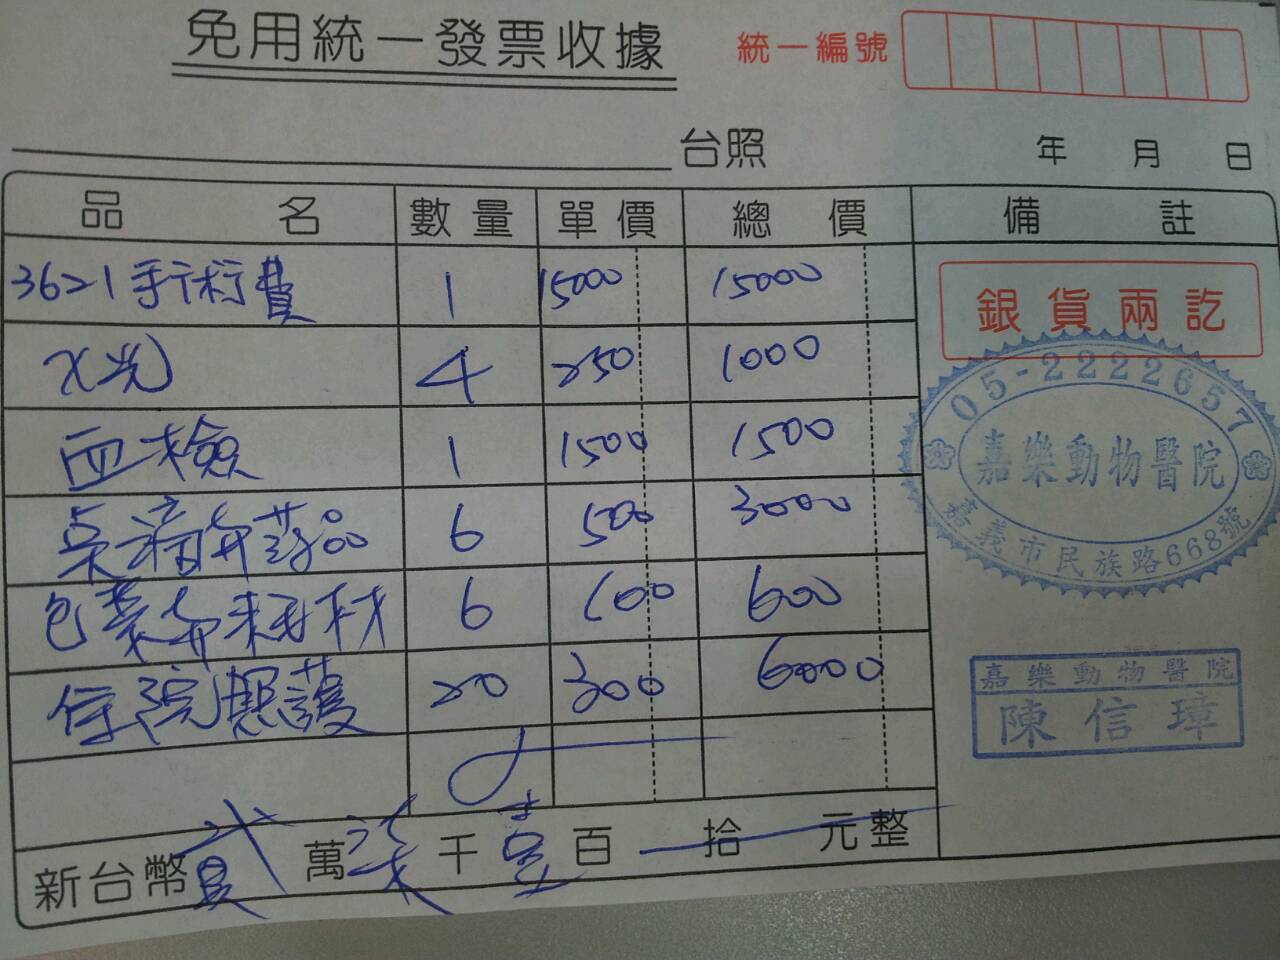 免用統一發票收據
統一編號
台照 年 月 日
品名 數量 單價 總價 備註
3621手術費 1 15000 15000
X光 4 250 1000
血檢 1 1500 1500
藥品 6 500 3000
包紮 耗材 6 100 600
住院照護 20 300 6000
新台幣貳萬柒千壹百拾元整
銀貨兩訖
05-2222657
嘉樂動物醫院
嘉義市民族路668號
嘉樂動物醫院
陳信璋